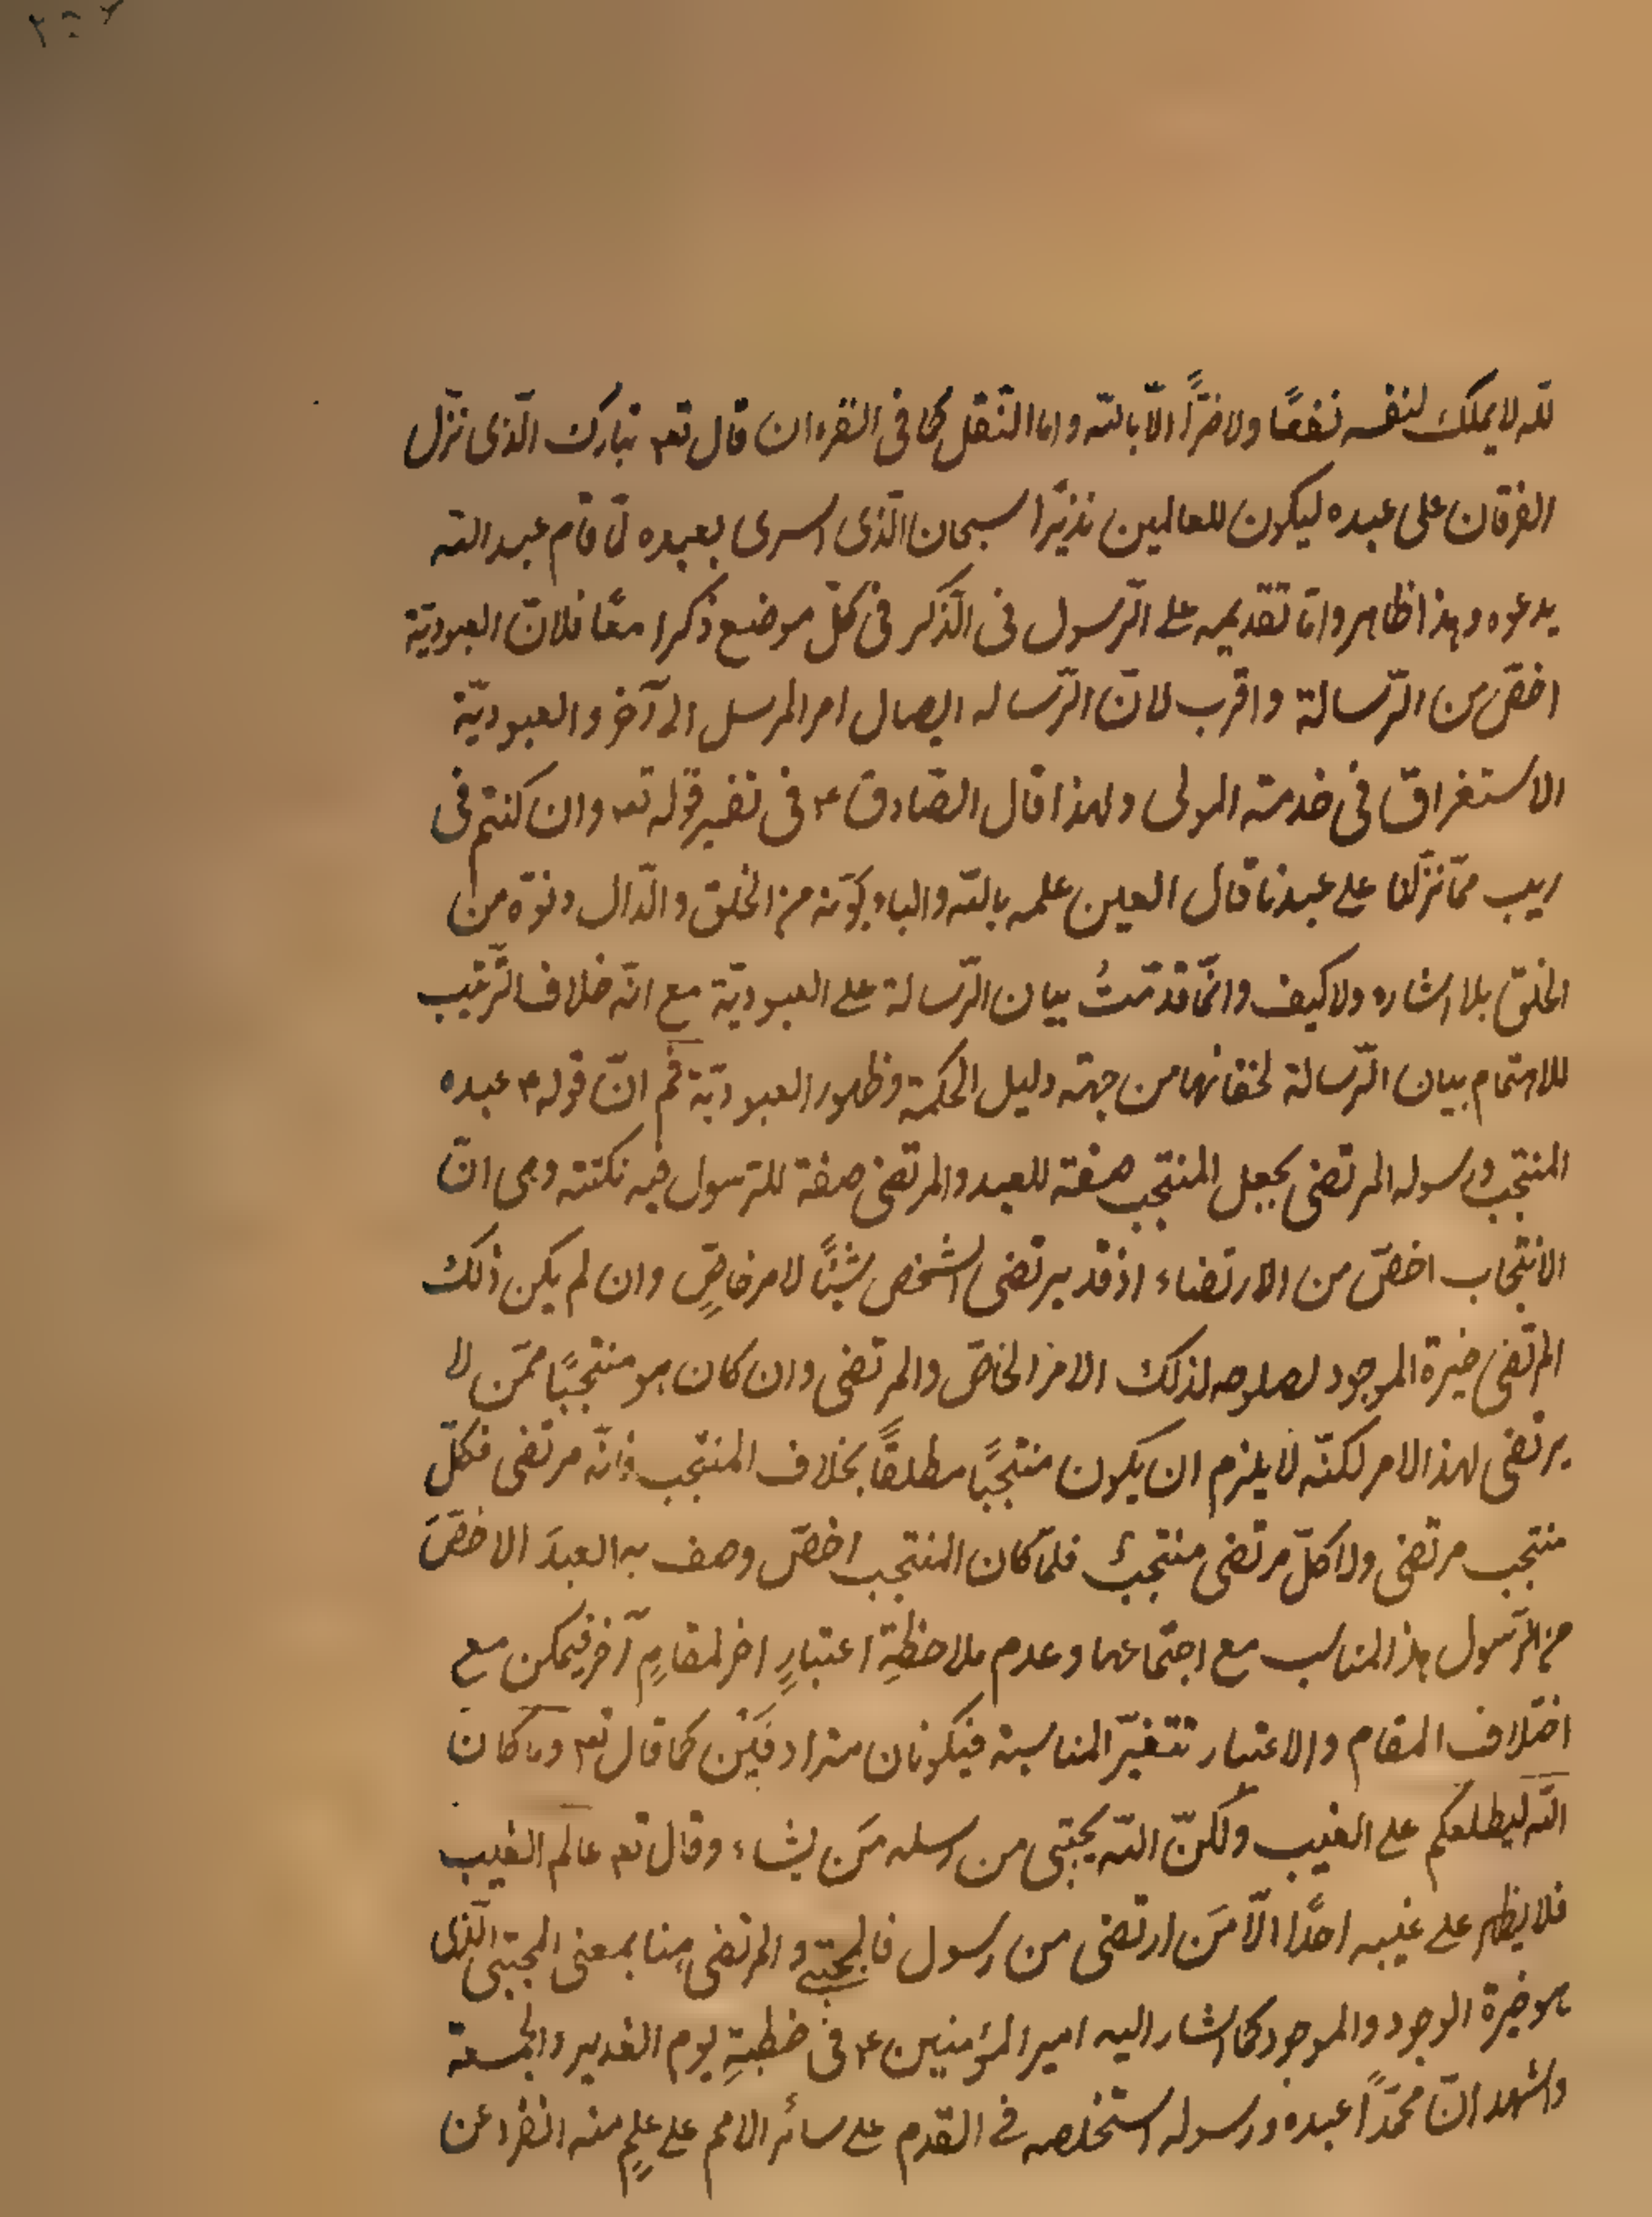 لله لا يملك لنفسه نفعًا ولا ضرًّا الّا بالله واما النّقل كما في القرءان قال تع تبارك الّذى نزّل
الفرقان على عبده ليكون للعالمين نذيرًا سبحان الّذى اسرى بعبده لمّا قام عبد الله
يدعوه وهذا ظاهر وامّا تقديمه على الرّسول في الذّكر في كلّ موضع ذكرا معًا فلانّ العبوديّة
اخصّ من الرّسالة واقرب لانّ الرّساله ايصال امر المرسل الى آخر والعبوديّة
الاستغراق في خدمة المولى ولهذا قال الصّادق ع في تفسير قوله تع وان كنتم في
ريب ممّا نزّلنا على عبدنا قال العين علمه بالله والباء بَونه من الخلق والدّال دنوّه من
الخلق بلا اشاره ولا كيف وانّما قدّمتُ بيان الرّسالة على العبوديّة مع انّه خلاف التّرتيب
للاهتمام ببيان الرّسالة لخفائها من جهة دليل الحكمة وظهور العبوديّة ثم انّ قوله ع عبده
المنتجب ورسوله المرتضى بجعل المنتجب صفة للعبد والمرتضى صفة للرّسول فيه نكتة وهى انّ
الانتجاب اخصّ من الارتضاء اذ قد يرتضى الشخص شيئًا لامر خاصٍّ وان لم يكن ذلك
المرتضى خيرة الموجود لصلوحه لذلك الامر الخاصّ والمرتضى وان كان هو منتجبًا ممّن لا
يرتضى لهذا الامر لكنّه لا يلزم ان يكون منتجبًا مطلقًا بخلاف المنتجب فإنّه مرتضى فكلّ
منتجب مرتضى ولا كلّ مرتضى منتجبٌ فلمّا كان المنتجب اخصّ وصف به العبدَ الاخصَّ
من الرّسول هذا المناسب مع اجتماعهما وعدم ملاحظةِ اعتبارٍ اخر لمقامٍ آخر فيمكن مع
اختلاف المقام والاعتبار تتغيّر المناسبة فيكونان مترادفَيْن كما قال تع وما كان
الله ليطلعكم على الغيب ولكنّ الله يجتبى من رسله مَن يشاء وقال تع عالم الغيب
فلا يظهر على غيبه احدًا الّا مَن ارتضى من رسول فالمجتبى والمرتضى هنا بمعنى المجتبى الّذى
هو خيرة الوجود والموجود كما اشار اليه امير المؤمنين ع في خطبةِ يوم الغدير والجمعة
واشهد انّ محمّدًا عبده ورسوله استخلصه في القدم على سائر الامم على علمٍ منه انفرد عن